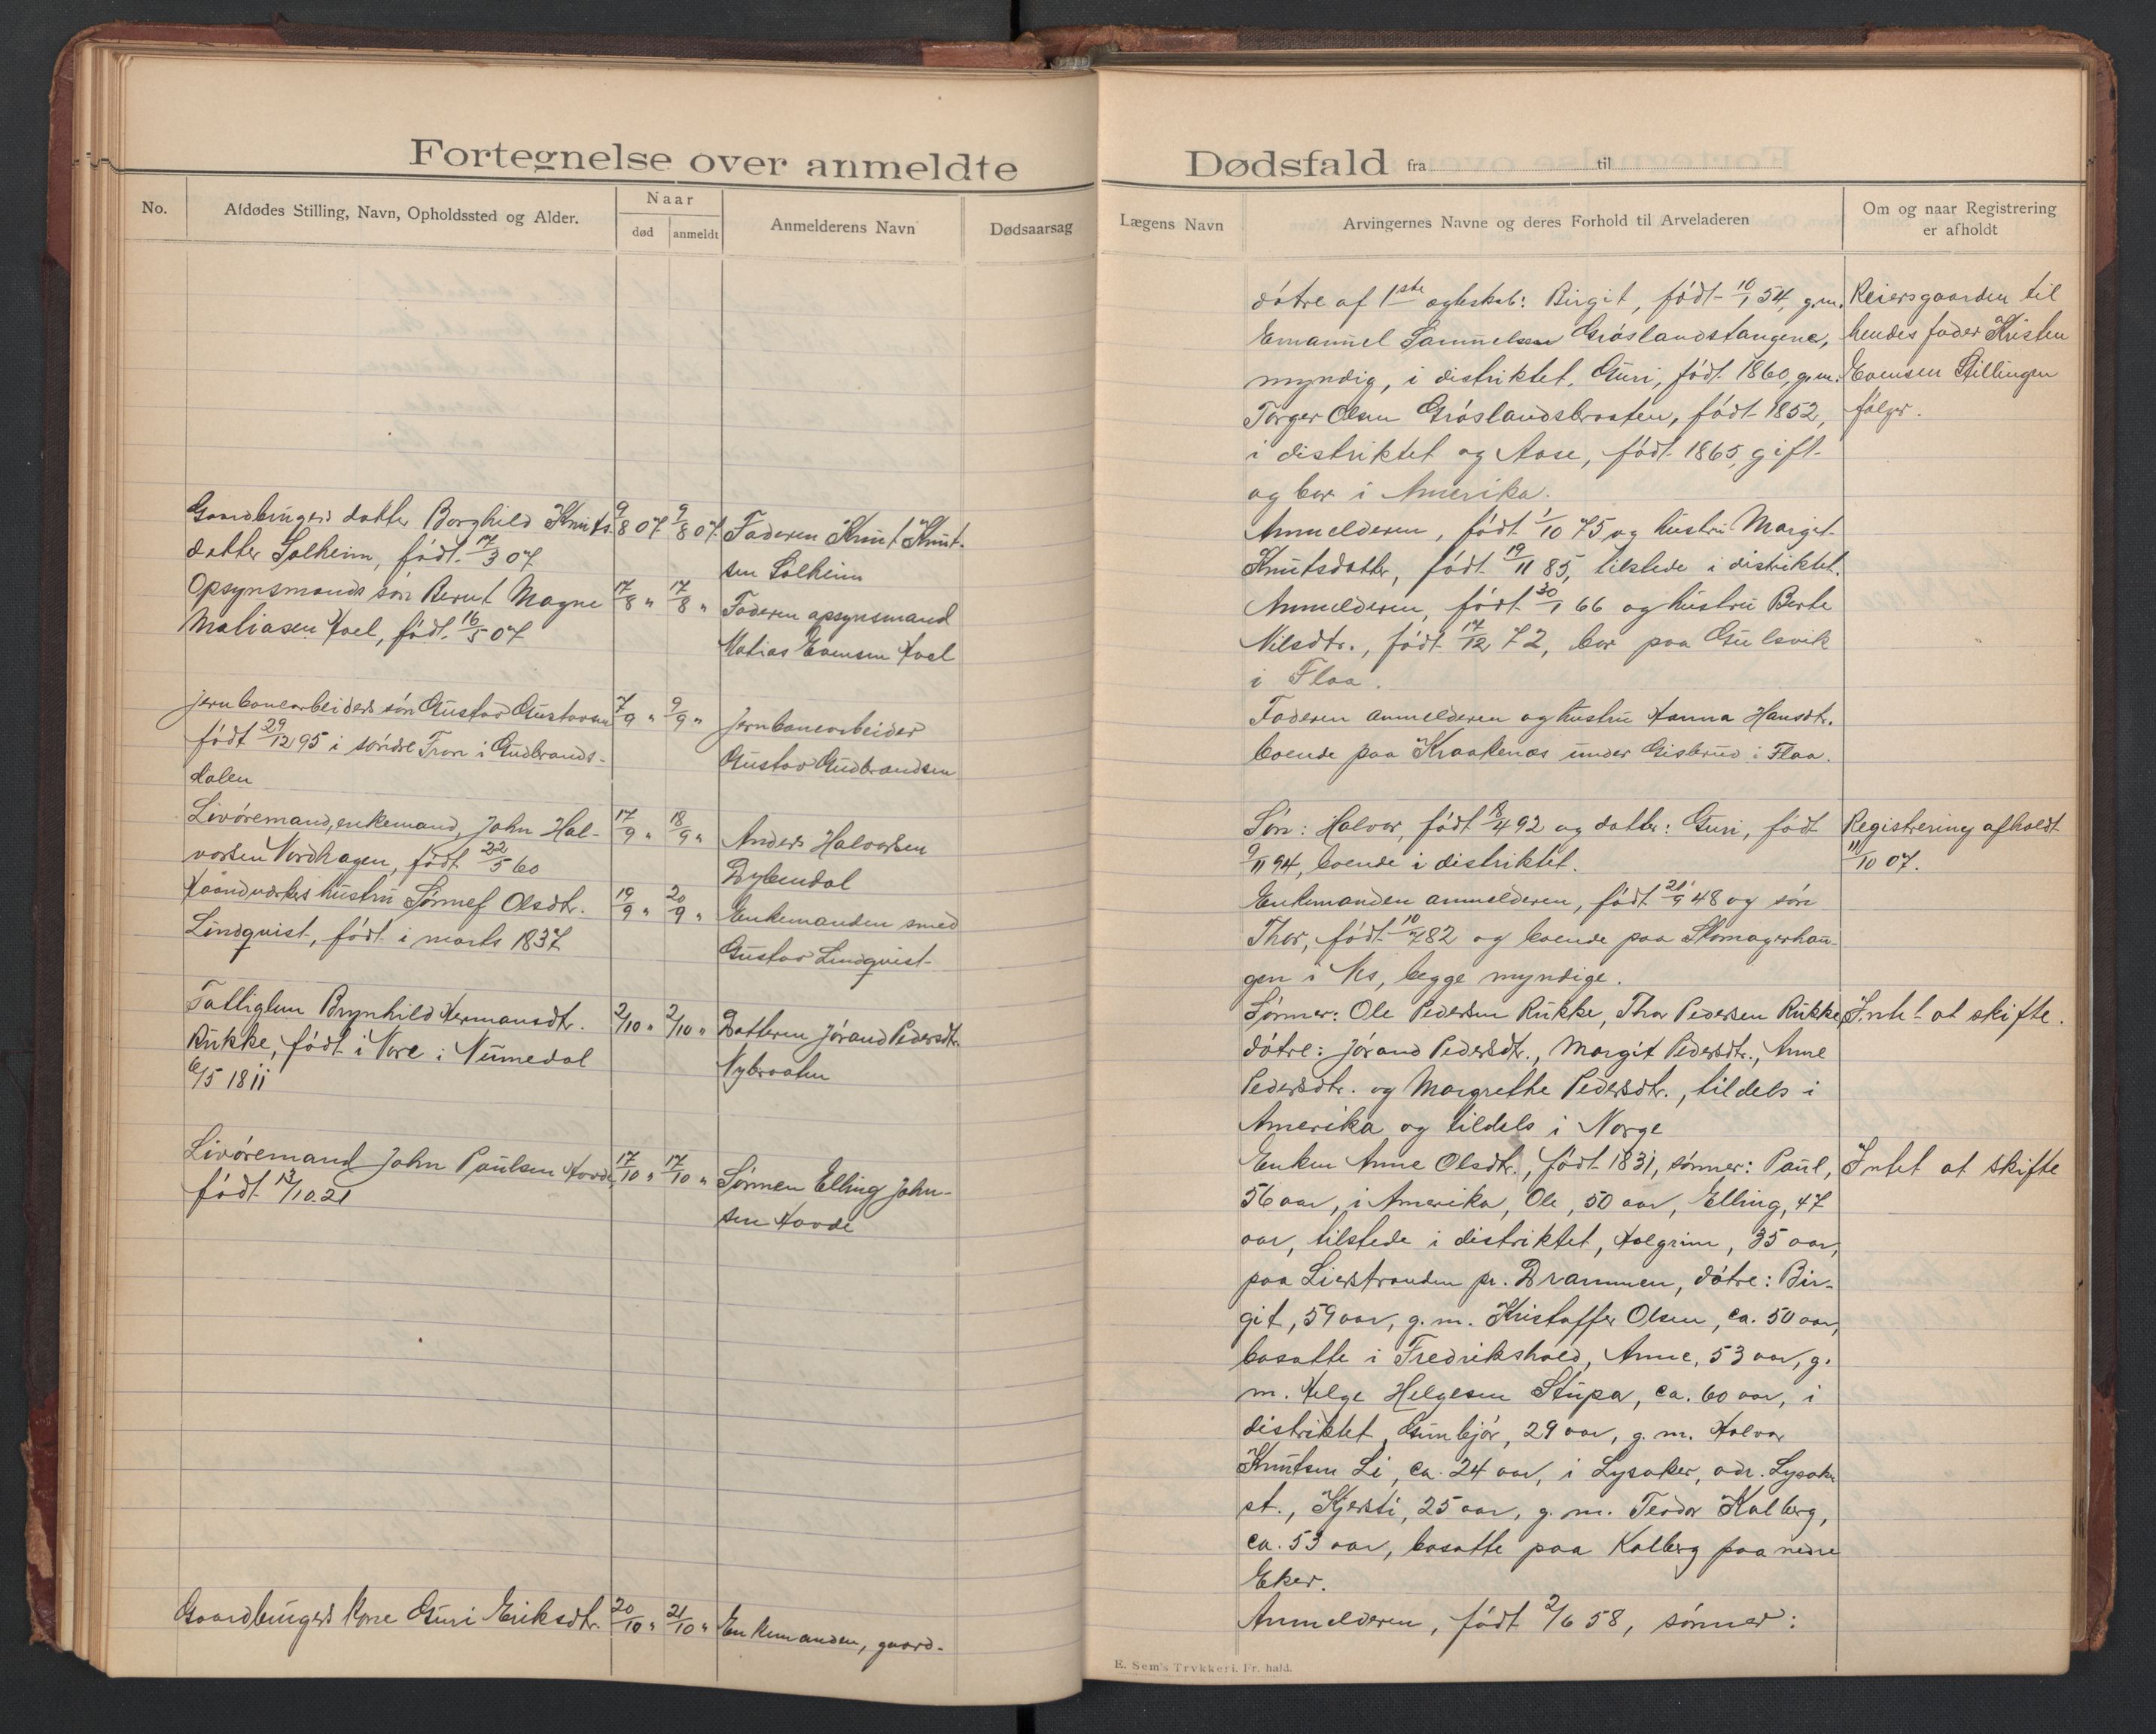 Fortegnelse over anmeldte
No.
Afdødes Stilling, Navn, Opholdssted og Alder.
Naar
død
anmeldt
Anmelderens Navn
Dødsaarsag
Gaardbrugers datter Borghild Knuts-
datter Solheim, født 17/3 07
9/8 07
9/8 07
Faderen Knut Knut-
sen Solheim
Opsynsmands søn Bernt Magne
Matiasen Hoel, født 16/5 07
17/8 "
17/8 "
Faderen opsynsmand
Matias Evensen Hoel
Jernbanearbeiders søn Gustav Gustavsen
født 29/12 95 i søndre Fron i Gudbrands-
dalen
7/9 "
9/9 "
Jernbanearbeider
Gustav Gudbrandsen
Livøremand, enkemand, John Hal-
vorsen Nordhagen, født 22/5 60
17/9 "
18/9 "
Anders Halvorsen
Dybendal
Haandverkers hustru Sønnef Olsdtr.
Lindqvist, født i marts 1837
19/9 "
20/9 "
Enkemanden smed
Gustav Lindqvist
Fattiglem Brynhild Hermansdtr.
Rukke, født i Nore i Numedal
6/5 1811
2/10 "
2/10 "
Datteren Jørand Pedersdtr.
Nybraaten
Livøremand John Paulsen Hovde,
født 13/10 21
17/10 "
17/10 "
Sønnen Elling John-
sen Hovde
Gaardbrugers kone Guri Eriksdtr.
20/10 "
21/10 "
Enkemanden, gaard-
Dødsfald fra til
Lægens Navn
Arvingernes Navne og deres Forhold til Arveladeren
Om og naar Registrering
er afholdt
døtre af 1ste egteskab: Birgit, født 10/1 54, g.m.
Emanuel Samuelsen Grøslandstangene,
myndig, i distriktet, Guri, født 1860, g.m.
Torger Olsen Grøslandsbraaten, født 1852,
i distriktet og Aase, født 1865, gift
og bor i Amerika.
Reiersgaarden til
hendes fader Kristen
Evensen Stillingen
følger.
Anmelderen, født 1/10 75 og hustru Margit
Knutsdatter, født 19/11 85, tilstede i distriktet.
Anmelderen, født 30/1 66 og hustru Berte
Nilsdtr., født 17/12 72, bor paa Gulsvik
i Flaa.
Faderen anmelderen og hustru Hanna Hansdtr.
boende paa Kraakenæs under Gislerud i Flaa.
Søn: Halvor, født 18/4 92 og datter: Guri, født
9/11 94, boende i distriktet.
Registrering afholdt
11/10 07.
Enkemanden anmelderen, født 21/9 48 og søn
Thor, født 10/7 82 og boende paa Skomagerhau-
gen i Nes, begge myndige.
Sønner: Ole Pedersen Rukke, Thor Pedersen Rukke,
døtre: Jørand Pedersdtr., Margit Pedersdtr., Anne
Pedersdtr. og Margrethe Pedersdtr., tildels i
Amerika og tildels i Norge
Intet at skifte.
Enken Anne Olsdtr., født 1831, sønner: Paul,
56 aar, i Amerika, Ole, 50 aar, Elling, 47
aar, tilstede i distriktet, Holgrim, 35 aar,
paa Lierstranden pr. Drammen, døtre: Bir-
git, 59 aar, g. m. Kristoffer Olsen, ca. 50 aar,
bosatte i Fredrikshald, Anne, 53 aar, g.
m. Helge Helgesen Stupa, ca. 60 aar, i
distriktet, Gunbjør, 29 aar, g. m. Halvor
Knutsen Li, ca. 24 aar, i Lysaker, adr. Lysaker
st., Kjersti, 25 aar, g. m. Teodor Kalberg,
ca. 53 aar, bosatte paa Kolberg paa nedre
Eker.
Intet at skifte
Anmelderen, født 2/6 58, sønner:
E. Sem's Trykkeri. Fr. hald.